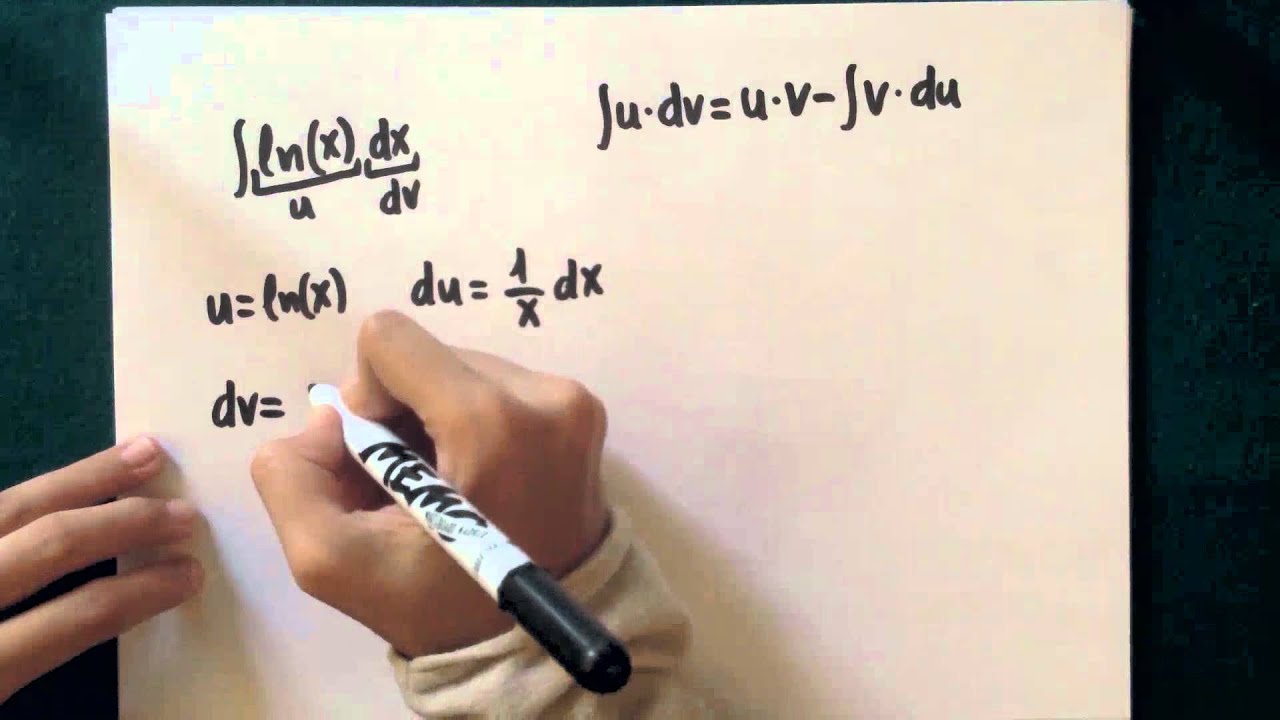 ∫u·dv=u·v-∫v·du
∫ln(x) dx
u dv
u=ln(x) du=1/x dx
dv=